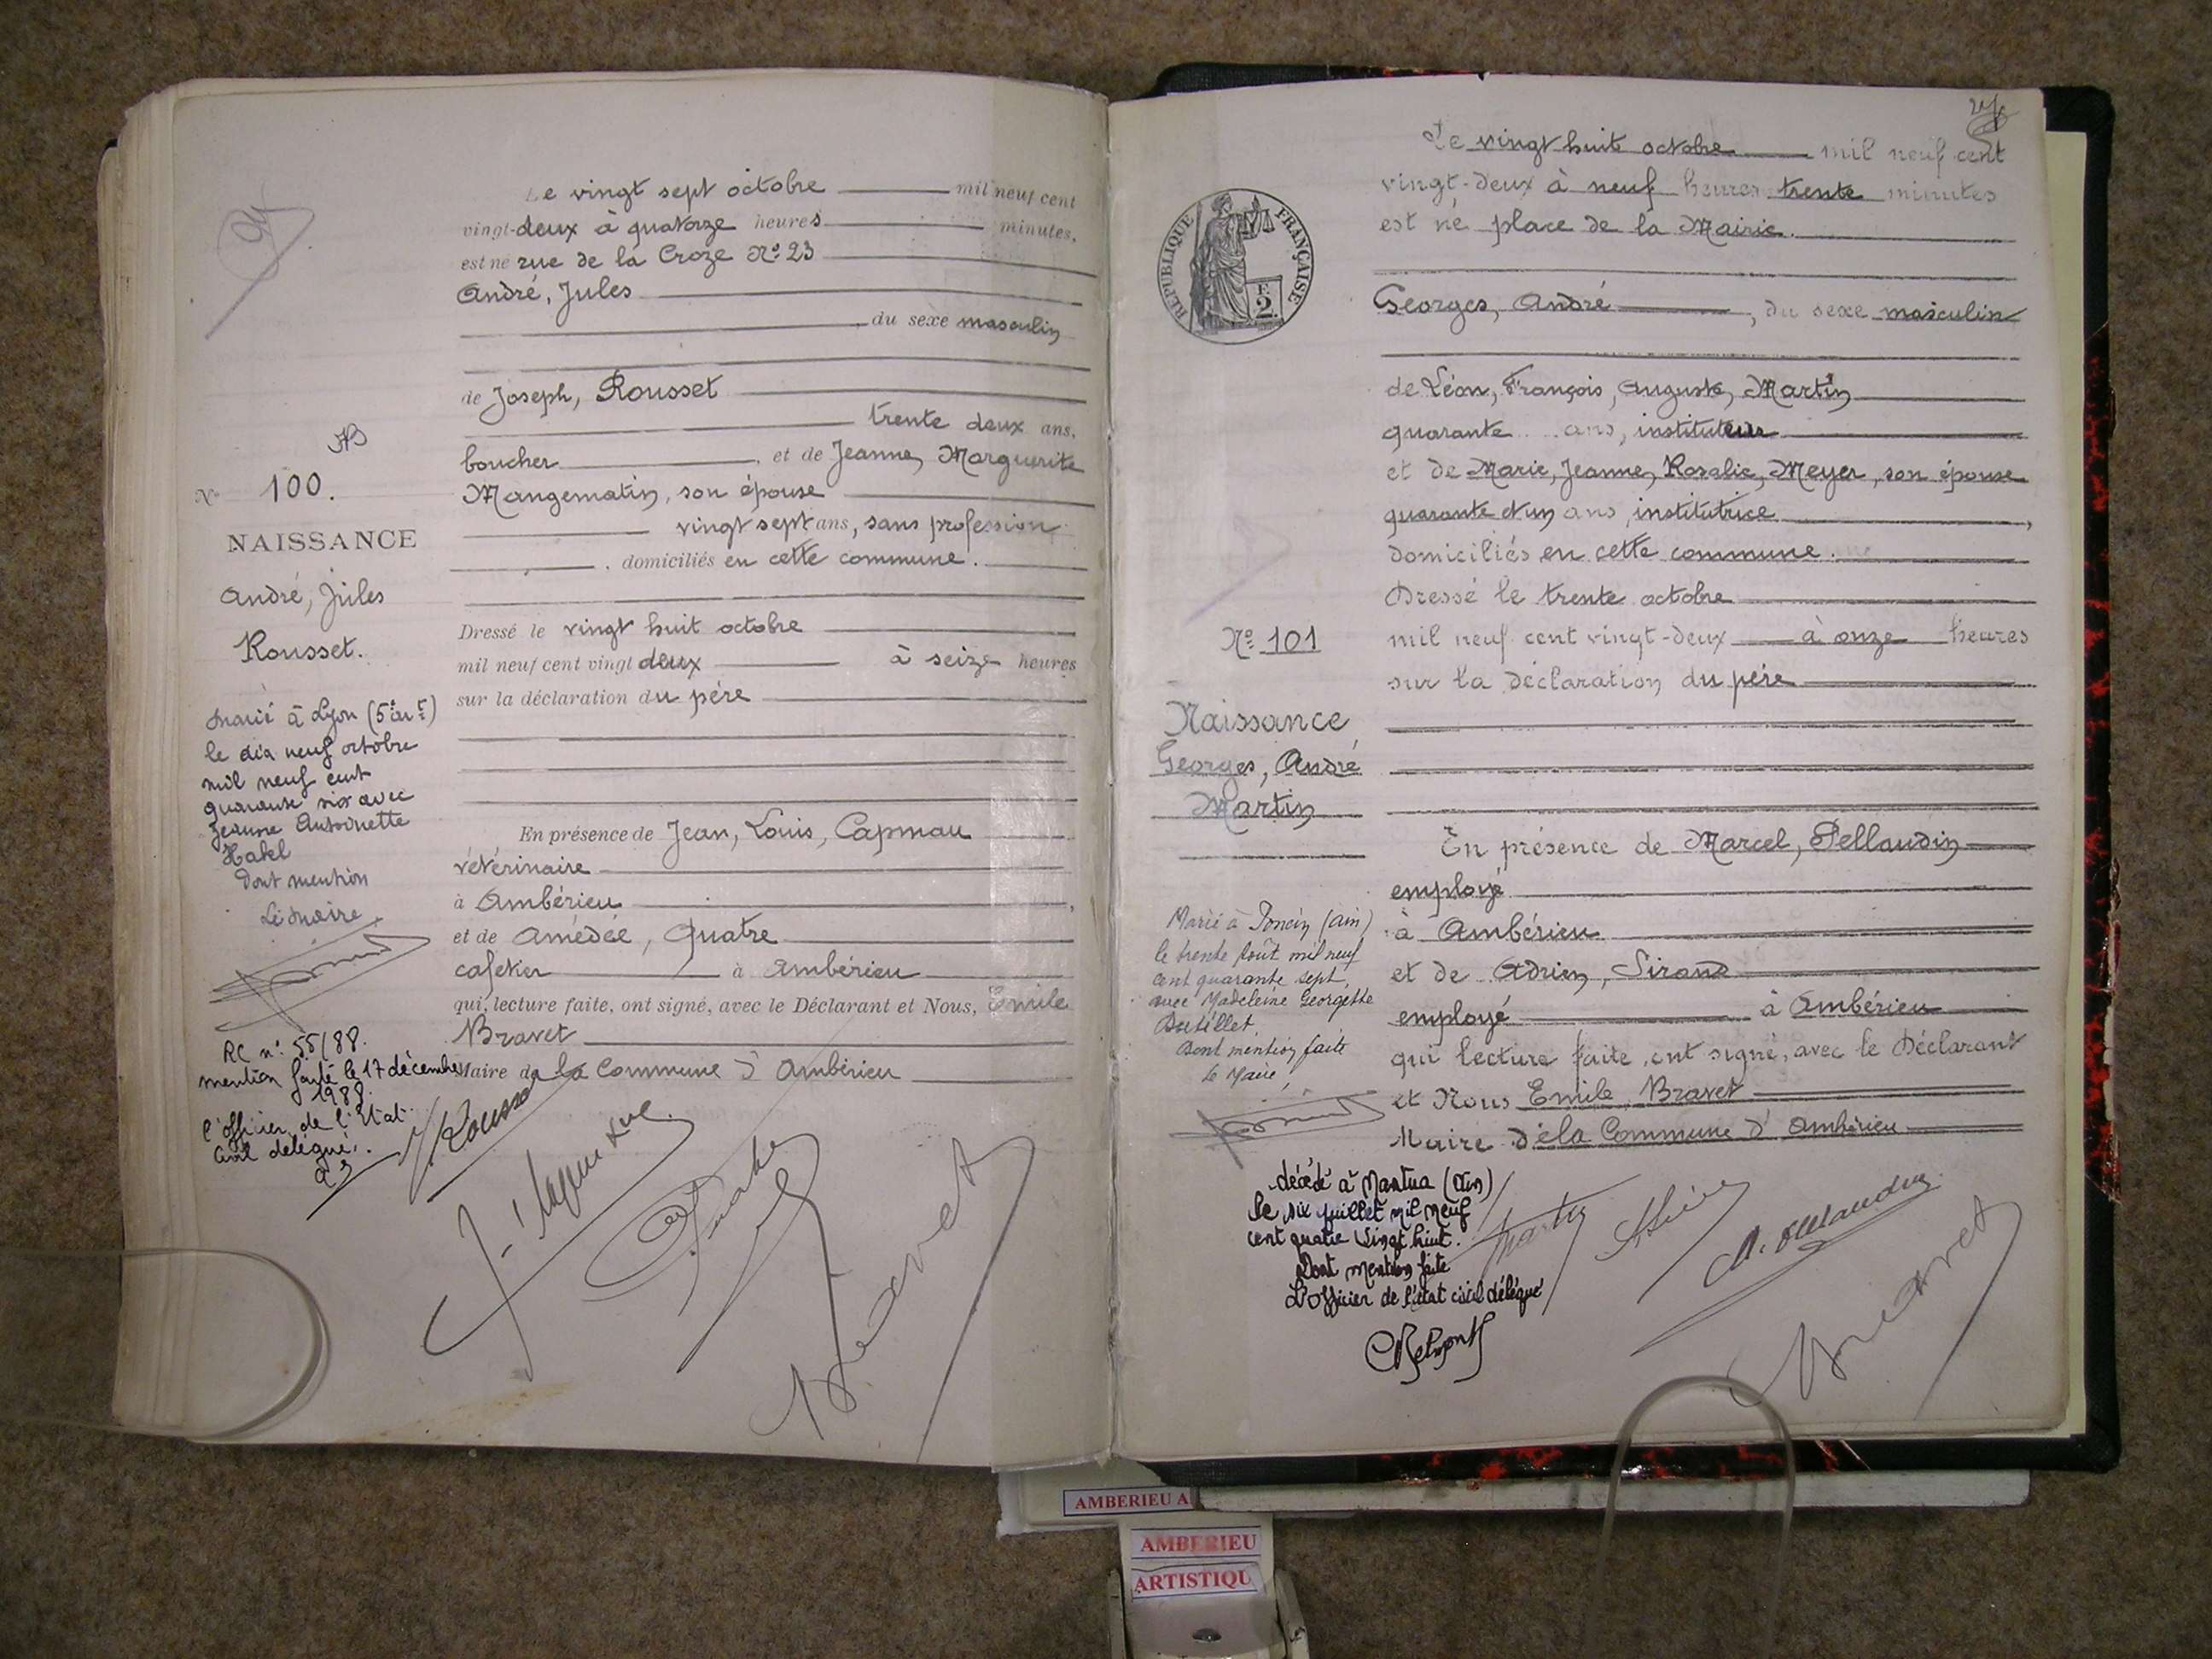 Le vingt sept octobre mil neuf cent
vingt-deux à quatorze heures minutes,
est né rue de la Croze N° 23
André, Jules
, du sexe masculin
de Joseph, Rousset
trente deux ans,
boucher, et de Jeanne, Marguerite
Mangematin, son épouse
vingt sept ans, sans profession
, domiciliés en cette commune.
Dressé le vingt huit octobre
mil neuf cent vingt deux à seize heures
sur la déclaration du père
En présence de Jean, Louis, Capmau
vétérinaire
à Ambérieu,
et de Amédée, Quatre
cafetier à Ambérieu
qui, lecture faite, ont signé, avec le Déclarant et Nous, Emile
Bravet
Maire de la Commune d'Ambérieu
N° 100.
NAISSANCE
André, Jules
Rousset.
Marié à Lyon (5e arrt)
le dix neuf octobre
mil neuf cent
quarante six avec
Jeanne Antoinette
Dont mention
Le Maire,
RC n° 55/88.
mention faite le 17 décembre
1988.
l'officier de l'Etat
Civil délégué.
Rousset
Bravet
Le vingt huit octobre mil neuf cent
vingt-deux à neuf heures trente minutes
est né place de la Mairie.
Georges, André, du sexe masculin
de Léon, François, Auguste, Martin
quarante ans, instituteur
et de Marie, Jeanne, Rosalie, Meyer, son épouse
quarante et un ans, institutrice,
domiciliés en cette commune.
Dressé le trente octobre
mil neuf cent vingt-deux à onze heures
sur la déclaration du père
En présence de Marcel, Pellaudin
employé
à Ambérieu
et de Adrien, Sirand
employé à Ambérieu
qui lecture faite, ont signé, avec le Déclarant
et Nous Emile, Bravet
Maire de la Commune d'Ambérieu
RÉPUBLIQUE FRANÇAISE
F.
2.
N° 101
Naissance
Georges, André
Martin
Marié à Poncin (Ain)
le trente Août mil neuf
cent quarante sept,
avec Madeleine Georgette
Dont mention faite
Le Maire,
décédé à Nantua (Ain)
le six juillet mil neuf
cent quatre vingt huit.
Dont mention faite
L'officier de l'état civil délégué
Martin
Bravet
AMBERIEU A
AMBERIEU
ARTISTIQU